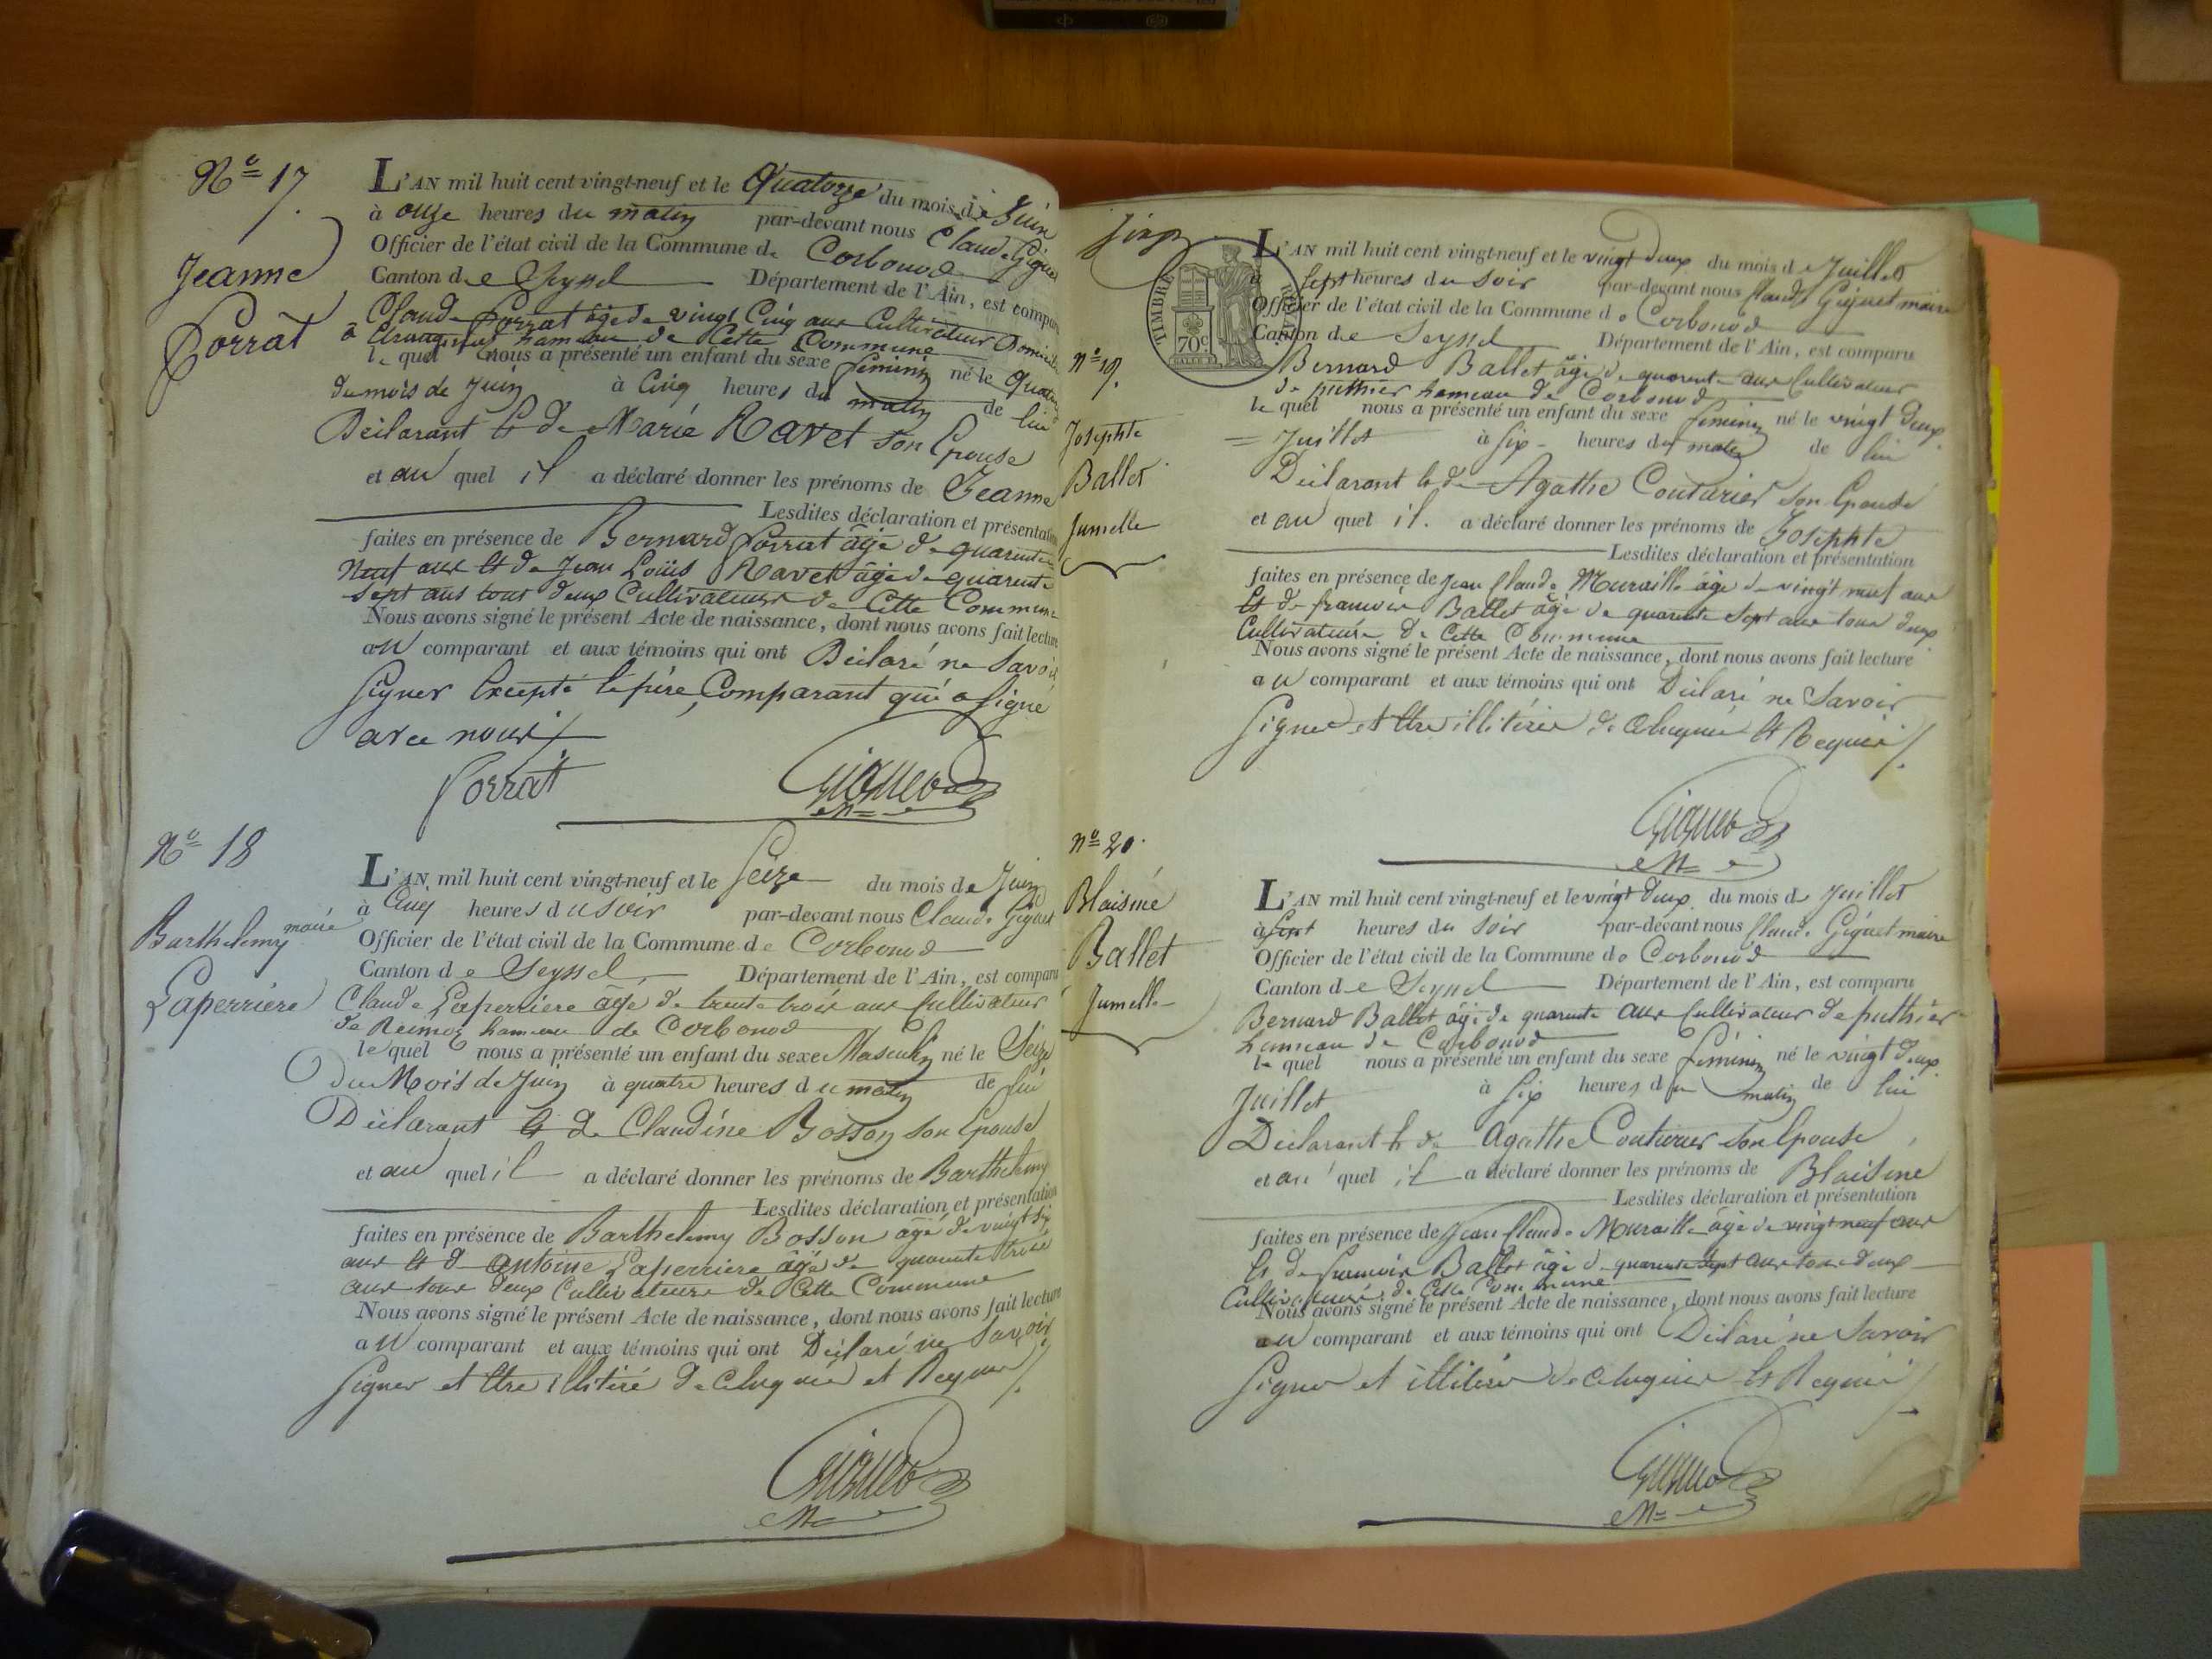 No 17
Jeanne
Porrat
L'AN mil huit cent vingt-neuf et le Quatorze du mois de Juin
à onze heures du matin par-devant nous Claude Giguet
Officier de l'état civil de la Commune de Corbonod
Canton de Seyssel Département de l'Ain, est comparu
Claude Porrat âgé de vingt Cinq ans Cultivateur Domicilié
à hameau de Cette Commune
lequel nous a présenté un enfant du sexe féminin né le Quatorze
du mois de Juin à Cinq heures du matin de lui
Déclarant Et de Marie Ravet son Epouse
et au quel il a déclaré donner les prénoms de Jeanne
Lesdites déclaration et présentation
faites en présence de Bernard Porrat âgé de quarante
Neuf ans Et de Jean Louis Ravet âgé de quarante
Sept ans tous deux Cultivateurs de Cette Commune
Nous avons signé le présent Acte de naissance, dont nous avons fait lecture
au comparant et aux témoins qui ont Déclaré ne Savoir
Signer Excepté le père Comparant qui a signé
avec nous
Porrat Giguet
No 18
Barthelemy
Laperriere
L'AN mil huit cent vingt-neuf et le Seize du mois de Juin
à Cinq heures du soir par-devant nous Claude Giguet
maire
Officier de l'état civil de la Commune de Corbonod
Canton de Seyssel Département de l'Ain, est comparu
Claude Laperriere âgé de trente trois ans Cultivateur
de hameau de Corbonod
lequel nous a présenté un enfant du sexe Masculin né le Seize
du Mois de Juin à quatre heures du matin de lui
Déclarant Et de Claudine Bosson son Epouse
et au quel il a déclaré donner les prénoms de Barthelemy
Lesdites déclaration et présentation
faites en présence de Barthelemy Bosson âgé de vingt six
ans Et de Antoine Laperriere âgé de quarante trois
ans tous deux Cultivateurs de Cette Commune
Nous avons signé le présent Acte de naissance, dont nous avons fait lecture
au comparant et aux témoins qui ont Déclaré ne Savoir
Signer et être illitéré de ce enquis et Requis
Giguet
TIMBRE ROYAL
70c
no 19.
Josephte
Ballet
Jumelle
L'AN mil huit cent vingt-neuf et le vingt deux du mois de Juillet
à Sept heures du soir par-devant nous Claude Giguet maire
Officier de l'état civil de la Commune de Corbonod
Canton de Seyssel Département de l'Ain, est comparu
Bernard Ballet âgé de quarante ans Cultivateur
de puthier hameau de Corbonod
lequel nous a présenté un enfant du sexe féminin né le vingt deux
Juillet à Six heures du matin de lui
Déclarant Et de Agathe Couturier son Epouse
et au quel il a déclaré donner les prénoms de Josephte
Lesdites déclaration et présentation
faites en présence de Jean Claude Muraille âgé de vingt neuf ans
Et de francois Ballet âgé de quarante sept ans tous deux
Cultivateurs de Cette Commune
Nous avons signé le présent Acte de naissance, dont nous avons fait lecture
au comparant et aux témoins qui ont Déclaré ne Savoir
Signer et être illitérés de ce enquis Et Requis
Giguet
no 20.
Blaisine
Ballet
Jumelle
L'AN mil huit cent vingt-neuf et le vingt deux du mois de Juillet
à Sept heures du soir par-devant nous Claude Giguet maire
Officier de l'état civil de la Commune de Corbonod
Canton de Seyssel Département de l'Ain, est comparu
Bernard Ballet âgé de quarante ans Cultivateur de puthier
hameau de Corbonod
lequel nous a présenté un enfant du sexe féminin né le vingt deux
Juillet à Six heures du matin de lui
Déclarant Et de Agathe Couturier son Epouse
et au quel il a déclaré donner les prénoms de Blaisine
Lesdites déclaration et présentation
faites en présence de Jean Claude Muraille âgé de vingt neuf ans
Et de francois Ballet âgé de quarante sept ans tous deux
Cultivateurs de Cette Commune
Nous avons signé le présent Acte de naissance, dont nous avons fait lecture
au comparant et aux témoins qui ont Déclaré ne Savoir
Signer et illitérés de ce enquis Et Requis
Giguet